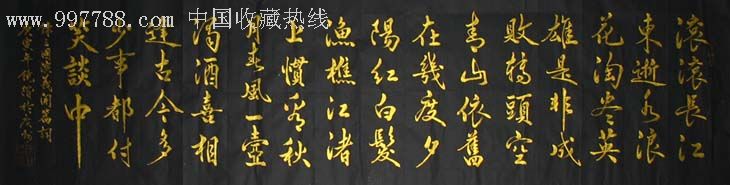 www.997788.com 中国收藏热线
滾滾長江
東逝水浪
花淘尽英
雄是非成
敗轉頭空
青山依舊
在幾度夕
陽紅白髮
漁樵江渚
上慣看秋
月春風一壺
濁酒喜相
逢古今多
少事都付
笑談中
三國演義開篇詞